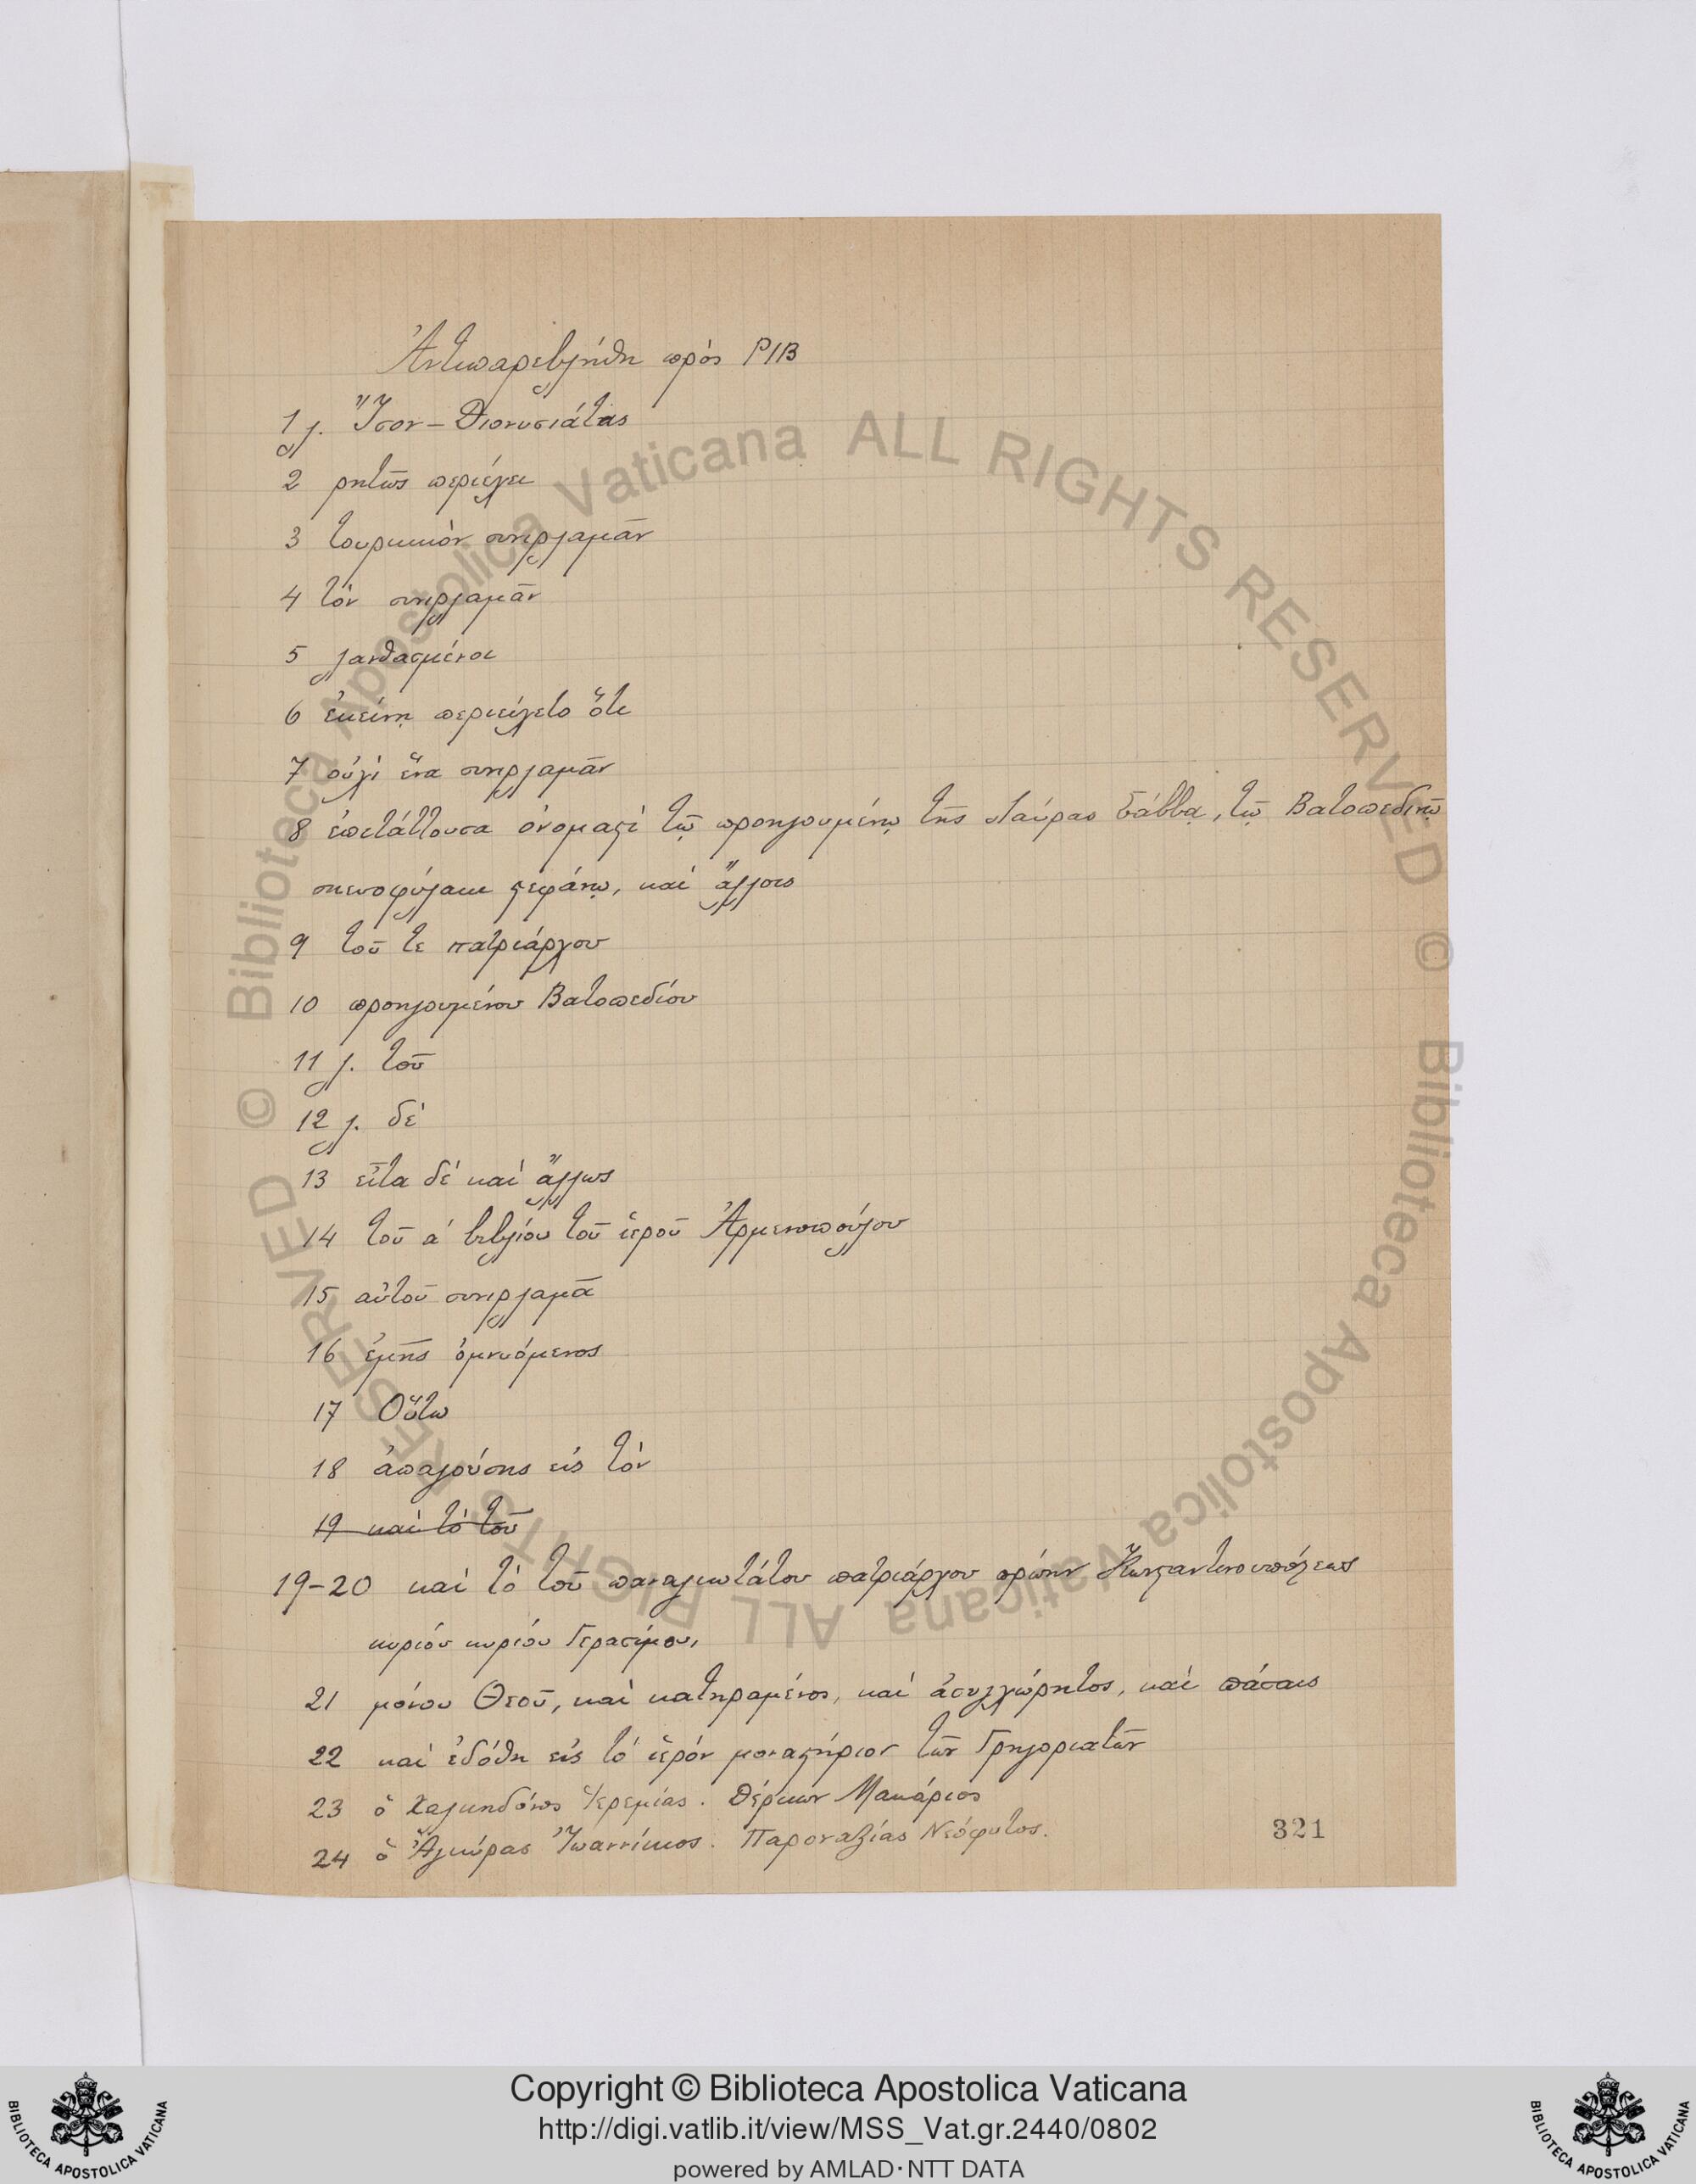 Ἀντιπαρεβλήθη πρὸς ΡΙΒ
1 λ. Ἴσον – Διονυσιάτας
2 ρητῶς περιέχει
3 τουρκικὸν συνιρλαμᾶν
4 τὸν συνιρλαμᾶν
5 λανθασμένοι
6 ἐκείνη περιείχετο ὅτι
7 οὐχὶ ἕνα συνιρλαμᾶν
8 ἐπιτάττουσα ὀνομαστὶ τῷ προηγουμένῳ τῆς Λαύρας Σάββᾳ, τῷ Βατοπεδινῷ
σκευοφύλακι στεφάνῳ, καὶ ἄλλοις
9 τοῦ τε πατριάρχου
10 προηγουμένου Βατοπεδίου
11 λ. τοῦ
12 λ. δὲ
13 εἶτα δὲ καὶ ἄλλως
14 τοῦ α΄ βιβλίου τοῦ ἱεροῦ Ἁρμενοπούλου
15 αὐτοῦ συνιρλαμᾶ
16 ἐμῆς ὀμνυόμενος
17 Οὕτω
18 ἀπαγούσης εἰς τὸν
19 καὶ τὸ τοῦ
19-20 καὶ τὸ τοῦ παναγιωτάτου πατριάρχου πρώην Κωνσταντινουπόλεως
κυρίου κυρίου Γερασίμου,
21 μόνου Θεοῦ, καὶ κατηραμένος, καὶ ἀσυγχώρητος, καὶ πάσαις
22 καὶ ἐδόθη εἰς τὸ ἱερὸν μοναστήριον τῶν Γρηγοριατῶν
23 ὁ Χαλκηδόνος Ἱερεμίας. Δέρκων Μακάριος
24 ὁ Ἀγκύρας Ἰωαννίκιος. Παροναξίας Νεόφυτος.
321
© Biblioteca Apostolica Vaticana ALL RIGHTS RESERVED © Biblioteca Apostolica Vaticana ALL RIGHTS RESERVED
BIBLIOTECA APOSTOLICA VATICANA
Copyright © Biblioteca Apostolica Vaticana
http://digi.vatlib.it/view/MSS_Vat.gr.2440/0802
powered by AMLAD·NTT DATA
BIBLIOTECA APOSTOLICA VATICANA